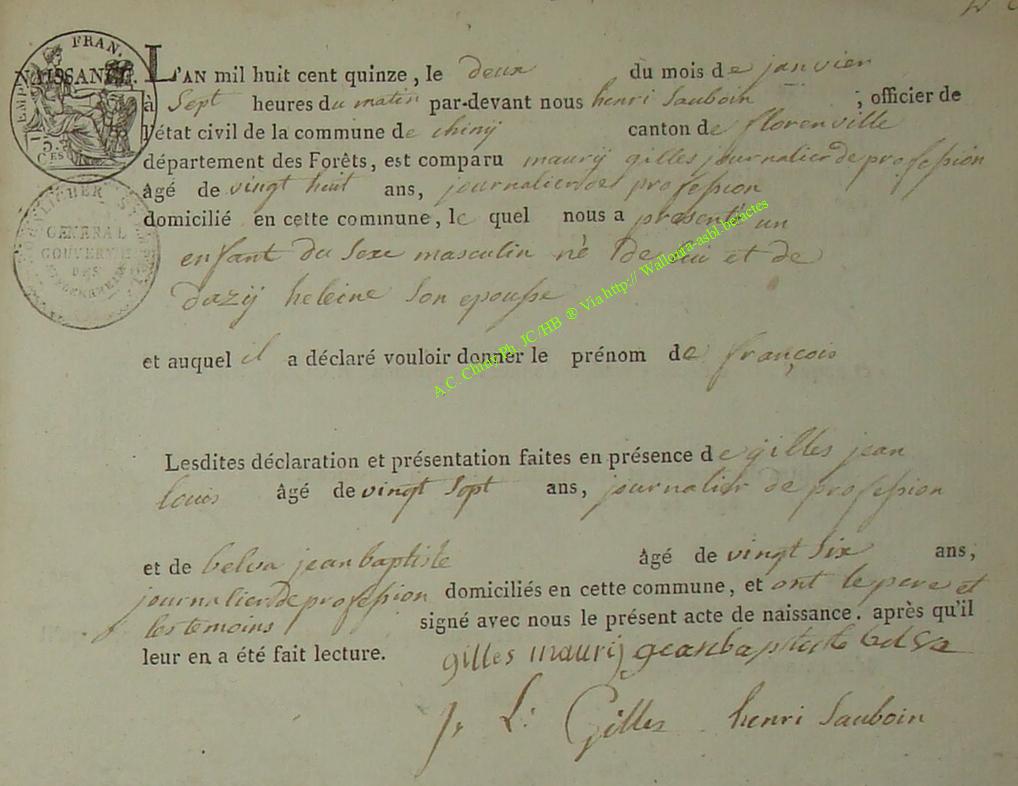 FRAN.
EMP
5.
C.ES
NAISSANCE. L'AN mil huit cent quinze, le deux du mois de janvier
à sept heures du matin par-devant nous henri Sauboin, officier de
l'état civil de la commune de chinÿ canton de florenville
département des Forêts, est comparu maurÿ gilles journalier de profession
âgé de vingt huit ans, journalier de profession
domicilié en cette commune, le quel nous a presenté un
GENERAL
GOUVERN
DES
enfant du sexe masculin né de lui et de
dazÿ heleine son epousse
et auquel il a déclaré vouloir donner le prénom de françois
A.C. Chiny Ph JC /HB ® Via http:// Wallonia-asbl.be/actes
Lesdites déclaration et présentation faites en présence de gilles jean
louis âgé de vingt sept ans, journalier de profession
et de belva jean baptiste âgé de vingt six ans,
journalier de profession domiciliés en cette commune, et ont le pere et
les temoins signé avec nous le présent acte de naissance. après qu'il
leur en a été fait lecture. gilles maurij geanbaptiste belva
J. L. Gilles henri Sauboin